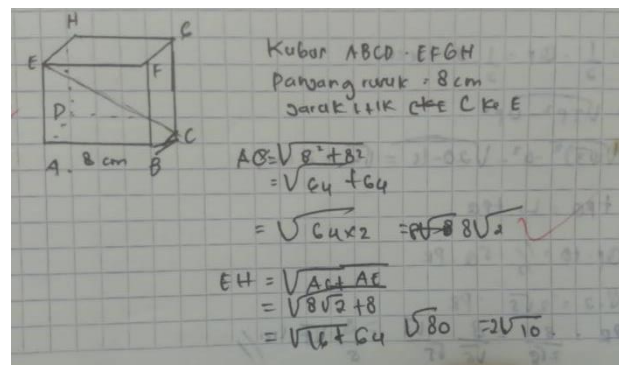 H
G
E
F
D
C
A. 8 cm B
Kubus ABCD.EFGH
Panjang rusuk = 8 cm
Jarak titik C ke E
AC = √8² + 8²
= √64 + 64
= √64 x 2 = 8√2
EH = √AC + AE
= √8√2 + 8
= √16 + 64 √80 = 2√10